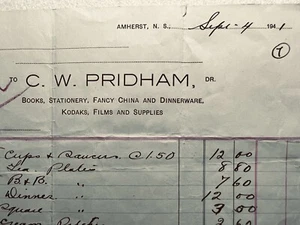 AMHERST, N. S., Sept - 4 1941
7
TO C. W. PRIDHAM, DR.
BOOKS, STATIONERY, FANCY CHINA AND DINNERWARE,
KODAKS, FILMS AND SUPPLIES
Cups & Saucers @ 1.50 12 00
Tea Plates 8 80
B & B. " 7 60
Dinner " 12 00
Square " 3 00
Cream 3 60